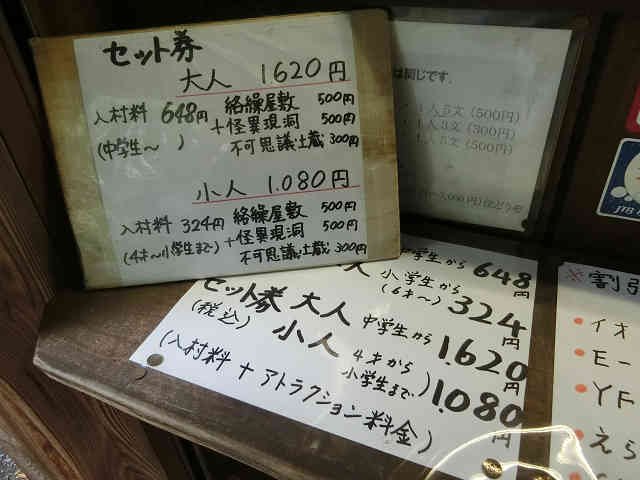 セット券
大人 1.620円
入村料 648円 絡繰屋敷 500円
(中学生〜 ) +怪異現洞 500円
不可思議土蔵 300円
小人 1.080円
入村料 324円 絡繰屋敷 500円
(4才〜小学生まで) +怪異現洞 500円
不可思議土蔵 300円
は同じです。
1人5文(500円)
1人3文(300円)
1人5文(500円)
人 中学生から 648円
小学生(6才〜) 324円
セット券 大人 中学生から 1.620円
(税込) 小人 4才から小学生まで) 1.080円
(入村料 + アトラクション料金)
※割引
・イオ
・Eー
・YF
・えら